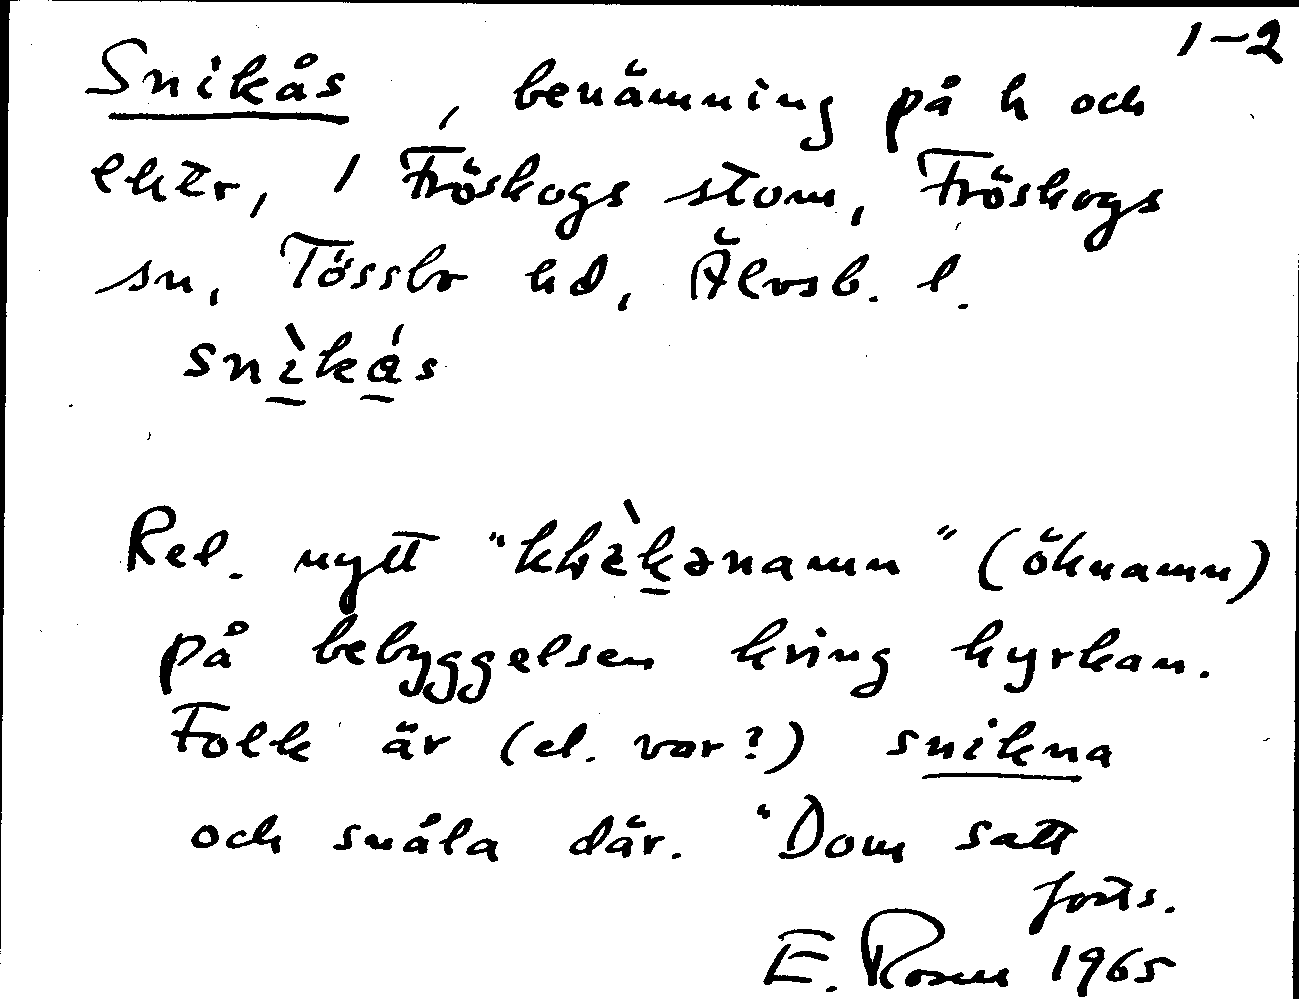 1-2
Snikås, benämning på h och
ehter, 1 Fröskogs stom, Fröskogs
sn, Tössbo hd, Älvsb. l.
snìkás
Rel. nytt "klèkənamn" (öknamn)
på bebyggelsen kring kyrkan.
Folk är (el. var?) snikna
och snåla där. "Dom satt
forts.
E. Rosen 1965